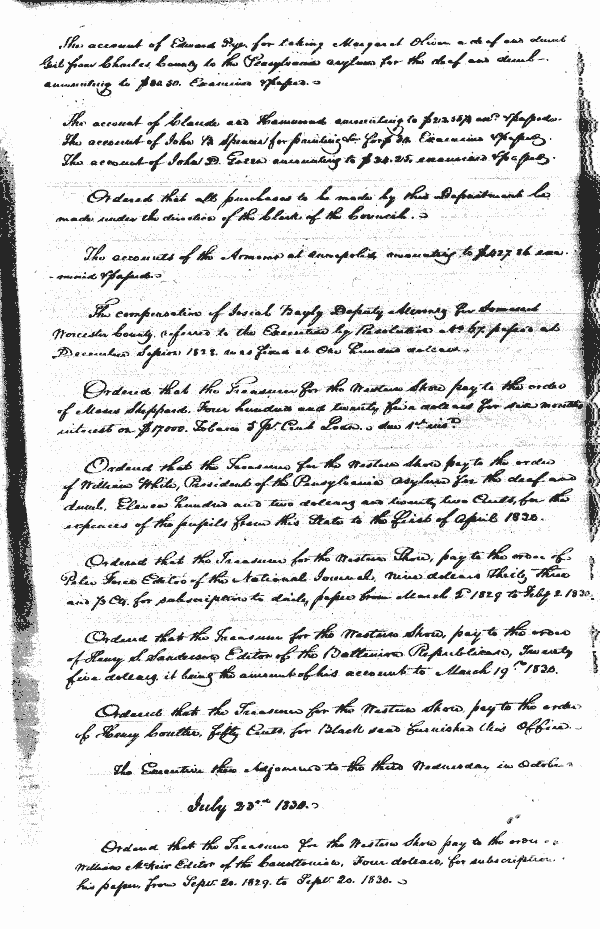 The account of Edward Pye for taking Margaret Oliver a deaf and dumb
Girl from Charles County to the Pensylvania asylum for the deaf and dumb
amounting to Examined & passed.
The account of Claude and Hammond amounting to & passed.
The account of John B Spencer for painting & for Examined & passed.
The account of John D. amounting to $24.25. examined & passed.
Ordered that all purchases to be made by this Department be
made under the direction of the Clerk of the Council.
The accounts of the Armorer at annapolis, amounting to $427.86 exa-
-mined & passed.
The compensation of Josiah Bayly Deputy Attorney for Somerset
Worcester County, referred to the Executive by Resolution No 67. passed at
December Session 1828. was fixed at One hundred dollars.
Ordered that the Treasurer for the Western Shore pay to the order
of Moses Sheppard. Four hundred and twenty five dollars for six months
interest on $17000. Tobacco 5 Pr Cent Loan. due 1st inst.
Ordered that the Treasurer for the Western Shore pay to the order
of William White, President of the Pensylvania asylum for the deaf and
dumb, Eleven hundred and two dollars and twenty two Cents, for the
expences of the pupils from this State to the first of April 1830.
Ordered that the Treasurer for the Western Shore, pay to the order of
Peter Force Editor of the National Journal, Nine dollars Thirty three
and Cts. for subscription to daily paper from March 5 1829 to Feby 2. 1830.
Ordered that the Treasurer for the Western Shore, pay to the order
of Henry S. Sanderson Editor of the Baltimore Republican, Twenty
five dollars, it being the amount of his account to March 19th 1830.
Ordered that the Treasurer for the Western Shore, pay to the order
of Henry Coulter, fifty Cents, for Black sand furnished this Office.
The Executive then Adjourned to the third Wednesday in October
July 23rd 1830.
Ordered that the Treasurer for the Western Shore pay to the order
William McNeir Editor of the Carolltonian, Four dollars, for subscription
his paper, from Sept. 20. 1829. to Sept. 20. 1830.